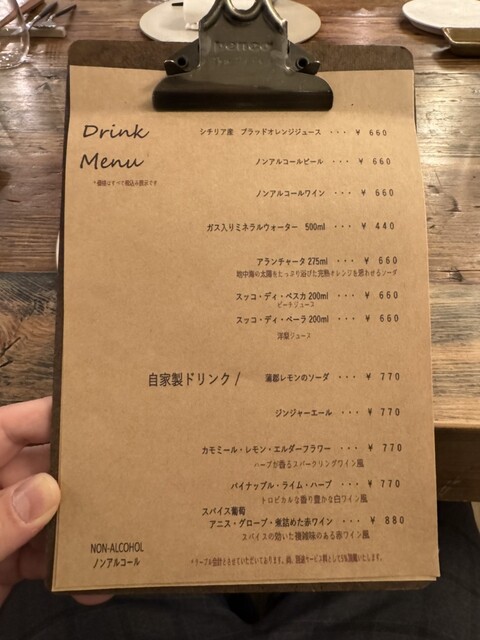 penco
Drink
Menu
*価格はすべて税込み表示です
シチリア産 ブラッドオレンジジュース ・・・ ¥ 660
ノンアルコールビール ・・・ ¥ 660
ノンアルコールワイン ・・・ ¥ 660
ガス入りミネラルウォーター 500ml ・・・ ¥ 440
アランチャータ 275ml ・・・ ¥ 660
地中海の太陽をたっぷり浴びた完熟オレンジを思わせるソーダ
スッコ・ディ・ペスカ 200ml ・・・ ¥ 660
ピーチジュース
スッコ・ディ・ペーラ 200ml ・・・ ¥ 660
洋梨ジュース
自家製ドリンク / 蒲郡レモンのソーダ ・・・ ¥ 770
ジンジャーエール ・・・ ¥ 770
カモミール・レモン・エルダーフラワー ・・・ ¥ 770
ハーブが香るスパークリングワイン風
パイナップル・ライム・ハーブ ・・・ ¥ 770
トロピカルな香り豊かな白ワイン風
スパイス葡萄
アニス・グローブ・煮詰めた赤ワイン ・・・ ¥ 880
スパイスの効いた複雑味のある赤ワイン風
NON-ALCOHOL
ノンアルコール
*テーブル会計とさせていただいております。尚、別途サービス料として5%頂戴いたします。